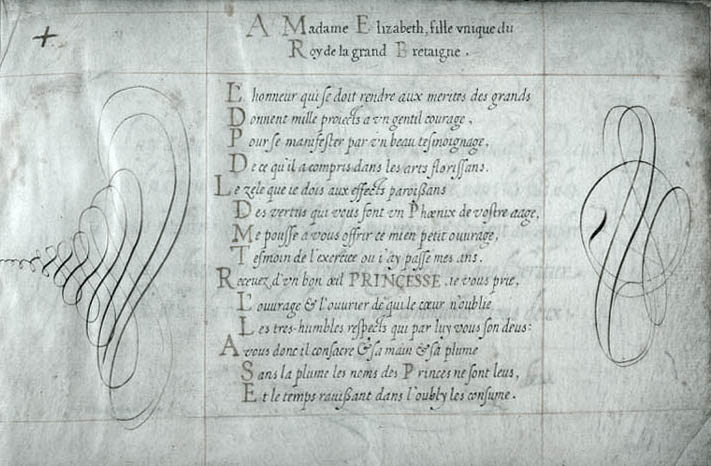 A Madame Elizabeth, fille vnique du
Roy de la grand Bretaigne.
L'honneur qui se doit rendre aux merites des grands
Donnent mille proiects a vn gentil courage,
Pour se manifester par vn beau tesmoignage,
De ce qu'il a compris dans les arts florissans.
Le zele que ie dois aux effects paroißans
Des vertus qui vous font vn Phœnix de vostre aage,
Me pousse a vous offrir ce mien petit ouurage,
Tesmoin de l'exercice ou i'ay passe mes ans.
Recevez d'vn bon œil PRINCESSE, ie vous prie,
L'ouurage & l'ouurier de qui le cœur n'oublie
Les tres-humbles respects qui par luy vous son deus:
A vous donc il consacre & sa main & sa plume
Sans la plume les noms des Princes ne sont leus,
Et le temps rauißant dans l'oubly les consume.